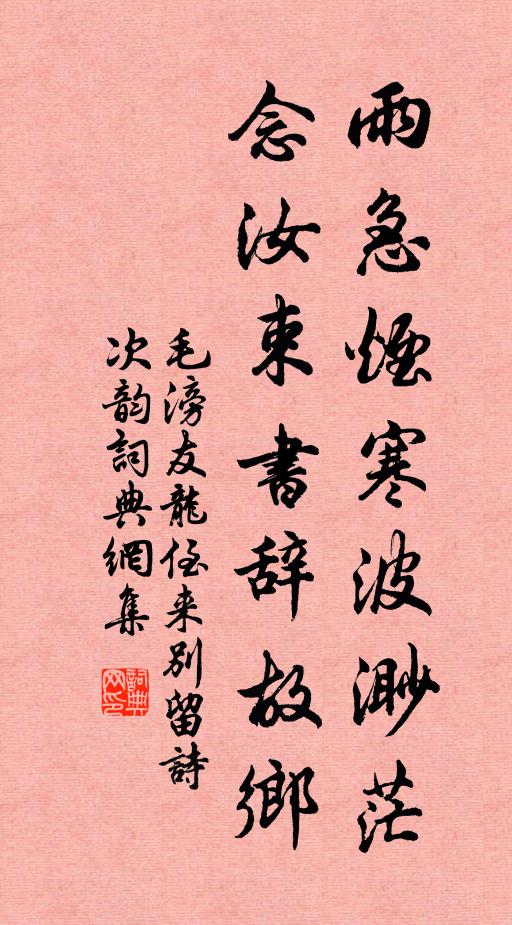 雨急煙寒波渺茫
念汝束書辞故鄉
毛滂友龍侄来别留詩
次韵詞典網集
詞典网印